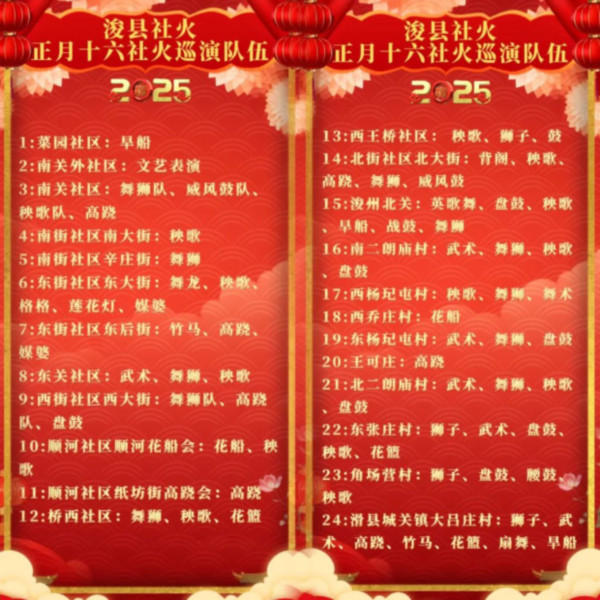 浚县社火
正月十六社火巡演队伍
2025
1:菜园社区：旱船
2:南关外社区：文艺表演
3:南关社区：舞狮队、威风鼓队、
秧歌队、高跷
4:南街社区南大街：秧歌
5:南街社区辛庄街：舞狮
6:东街社区东大街：舞龙、秧歌、
格格、莲花灯、媒婆
7:东街社区东后街：竹马、高跷、
媒婆
8:东关社区：武术、舞狮、秧歌
9:西街社区西大街：舞狮队、高跷
队、盘鼓
10:顺河社区顺河花船会：花船、秧
歌
11:顺河社区纸坊街高跷会：高跷
12:桥西社区：舞狮、秧歌、花篮
浚县社火
正月十六社火巡演队伍
2025
13:西王桥社区： 秧歌、狮子、鼓
14:北街社区北大街：背阁、秧歌、
高跷、舞狮、威风鼓
15:浚州北关：英歌舞、盘鼓、秧歌
、旱船、战鼓、舞狮
16:南二朗庙村：武术、舞狮、秧歌
、盘鼓
17:西杨玘屯村：秧歌、舞狮、舞术
18:西乔庄村：花船
19:东杨玘屯村：武术、舞狮、盘鼓
20:王可庄：高跷
21:北二朗庙村：武术、舞狮、秧歌
、盘鼓
22:东张庄村：狮子、武术、盘鼓、
秧歌、花篮
23:角场营村：狮子、盘鼓、腰鼓、
秧歌
24:滑县城关镇大吕庄村：狮子、武
术、高跷、竹马、花篮、扇舞、旱船